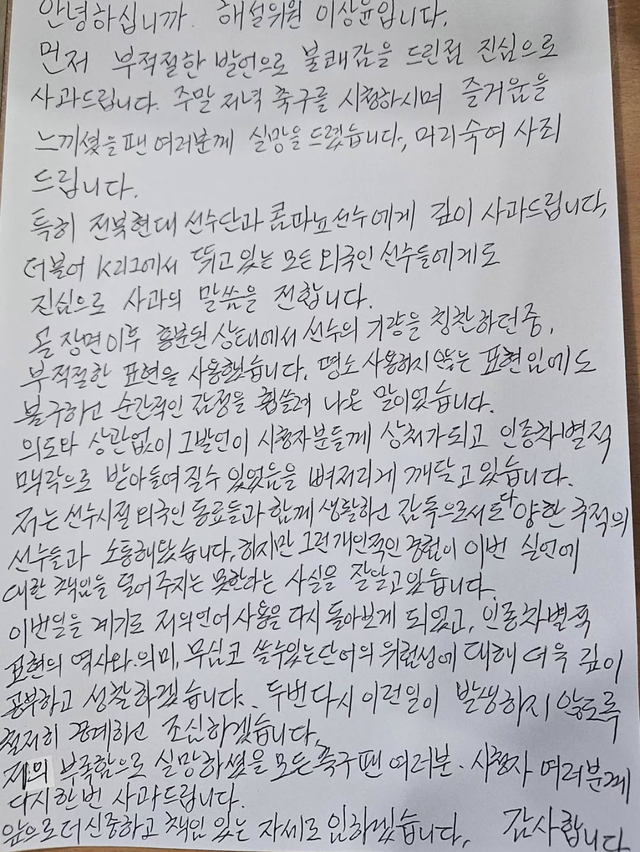 안녕하십니까. 해설위원 이상윤입니다.
먼저 부적절한 발언으로 불쾌감을 드린점 진심으로
사과드립니다. 주말 저녁 축구를 시청하시며 즐거움을
느끼셨을 팬 여러분께 실망을 드렸습니다, 머리숙여 사죄
드립니다.
특히 전북현대 선수단과 콤파뇨선수에게 깊이 사과드립니다,
더불어 K리그에서 뛰고 있는 모든 외국인 선수들에게도
진심으로 사과의 말씀을 전합니다.
골 장면이후 흥분된 상태에서 선수의 기량을 칭찬하던 중,
부적절한 표현을 사용했습니다. 평소 사용하지 않는 표현임에도
불구하고 순간적인 감정을 휩쓸려 나온 말이었습니다.
의도와 상관없이 그발언이 시청자분들께 상처가되고 인종차별적
맥락으로 받아들여질수 있었음을 뼈저리게 깨닫고 있습니다.
저는 선수시절 외국인 동료들과 함께 생활하고 감독으로서도 다양한 국적의
선수들과 소통해왔습니다, 하지만 그런개인적인 경험이 이번 실언에
대한 책임을 덜어 주지는 못한다는 사실을 잘알고있습니다.
이번일을 계기로 저의언어 사용을 다시 돌아보게 되었고, 인종차별적
표현의 역사와 의미, 무심코 쓸수있는단어의 위험성에 대해 더욱 깊이
공부하고 성찰하겠습니다. 두번다시 이런일이 발생하지 않도록
철저히 경계하고 조심하겠습니다,
저의 부족함으로 실망하셨을 모든축구팬 여러분. 시청자 여러분께
다시한번 사과드립니다.
앞으로더신중하고 책임 있는 자세로 임하겠습니다, 감사합니다